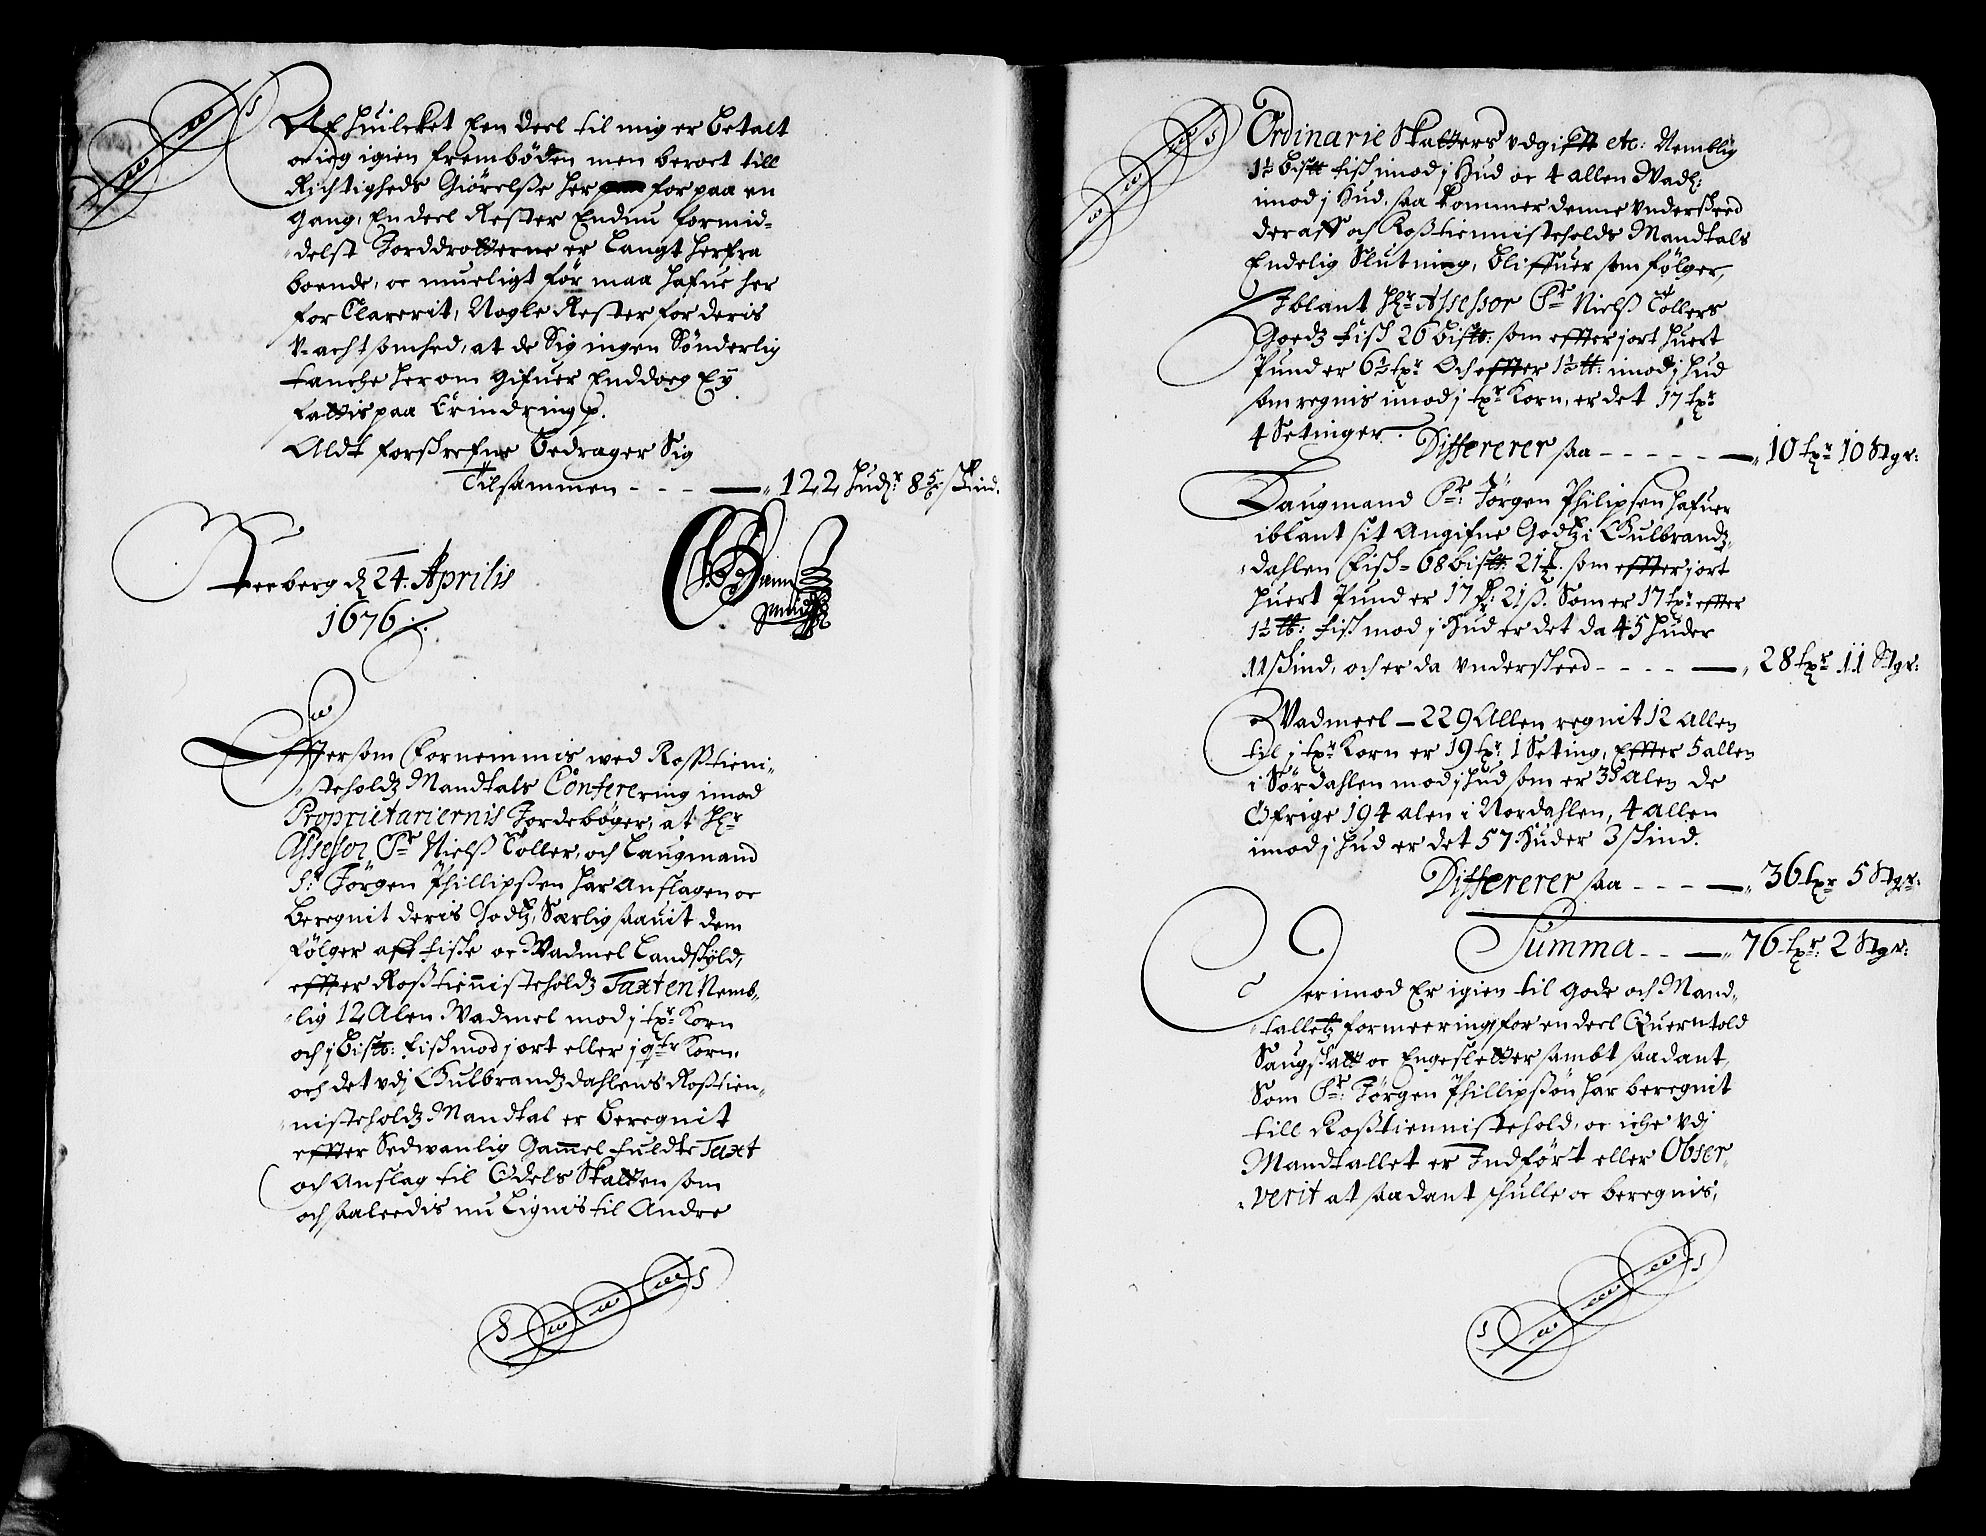 Af huilcket Een deel til mig er betalt
oc ieg igien frembøden men beroet till
Richtigheds Giørelsse her for paa en
gang, En deel Rester Endnu formid-
delst Jorddrotterne er langt herfra
boende, oc mueligt før maa hafue her
for Clarerit, Nogle Rester for deris
V-achtsomhed, at de Sig ingen Sønderlig
tanche her om gifuer Enddoeg Eÿ
fattis paa Erindring p.
Aldt forskrefne bedrager Sig
Tilsammen - - - — 122 huder 8 skind.
Feeberg d 24: Aprilis
1676
Effter som Fornemmis wed Rosstieni-
steholdz Mandtals Confererring imod
Proprietariernis Jordebøger, at Hr
Assessor Sr Nielss Toller, och Laugmand
Sr Jørgen Phillipssen har Anslagen oc
beregnit deris Godtz, Særlig saauit dem
følger aff fiske oc Wadmel Landskÿld,
effter Rosstiennisteholdz Taxten Nemb-
lig 12 Alen Wadmel mod j tpr Korn
och j bistt: fisk mod j ort eller j qtr Korn.
och det vdj Gulbrandzdahlens Rosstien-
nisteholdz Mandtal er beregnit
effter Sedwanlig Gammel fuldte Taxt
och Anslag til Odels Skatten som
och saaleedis nu Lignis til Andre
Ordinarie Skatters vdgifft etc: Nemblig
1½ bistt fisk imod j Hud oc 4 allen Wadl:
imod j Hud, saa kommer denne vnderskeed
deraff och Rosstiennisteholds Mandtals
Endelig Slutning, bliffuer som følger,
Iblant Hr Assessor Sr Nielss Tollers
Goedz fisk 26 bistt: som effter j ort huert
Pund er 6½ tpr Och effter 1½ tt: imod j hud
som regnis imod j tpr Korn, er det 17 tpr
4 Setinger. Differerer saa - - - - - — 10 tpr 10 Stgr:
Laugmand Sr: Jørgen Philipsen hafuer
iblant sit Angifne Godtz i Gulbrandz-
dahlen Fisk = 68 bistt: 21. som effter j ort
huert Pund er 17 21 ss. Som er 17 tpr effter
1½ tt: fisk mod j Hud er det da 45 huder
11 skind, och er da vnderskeed - - - - — 28 tpr 11 Stgr:
Wadmeel — 229 Allen regnit 12 Allen
til j tpr Korn er 19 tpr 1 Seting, Effter 5 allen
i Sørdahlen mod j hud som er 35 Alen de
Øfrige 194 alen i Nordahlen, 4 allen
imod j hud er det 57 Huder 3 skind.
Differerer saa - - - — 36 tpr 5 Stgr:
Summa - - — 76 tpr: 2 Stgr:
Herimod Er igien til gode och Mand-
talletz formeering for en deel Querntold
Saugskatt oc Engesletter sambt saadant,
Som Sr: Jørgen Phillipssøn har beregnit
till Rosstiennistehold, oc iche vdj
Mandtallet er Indført eller Obser-
verit at saadant schulle oc beregnis,